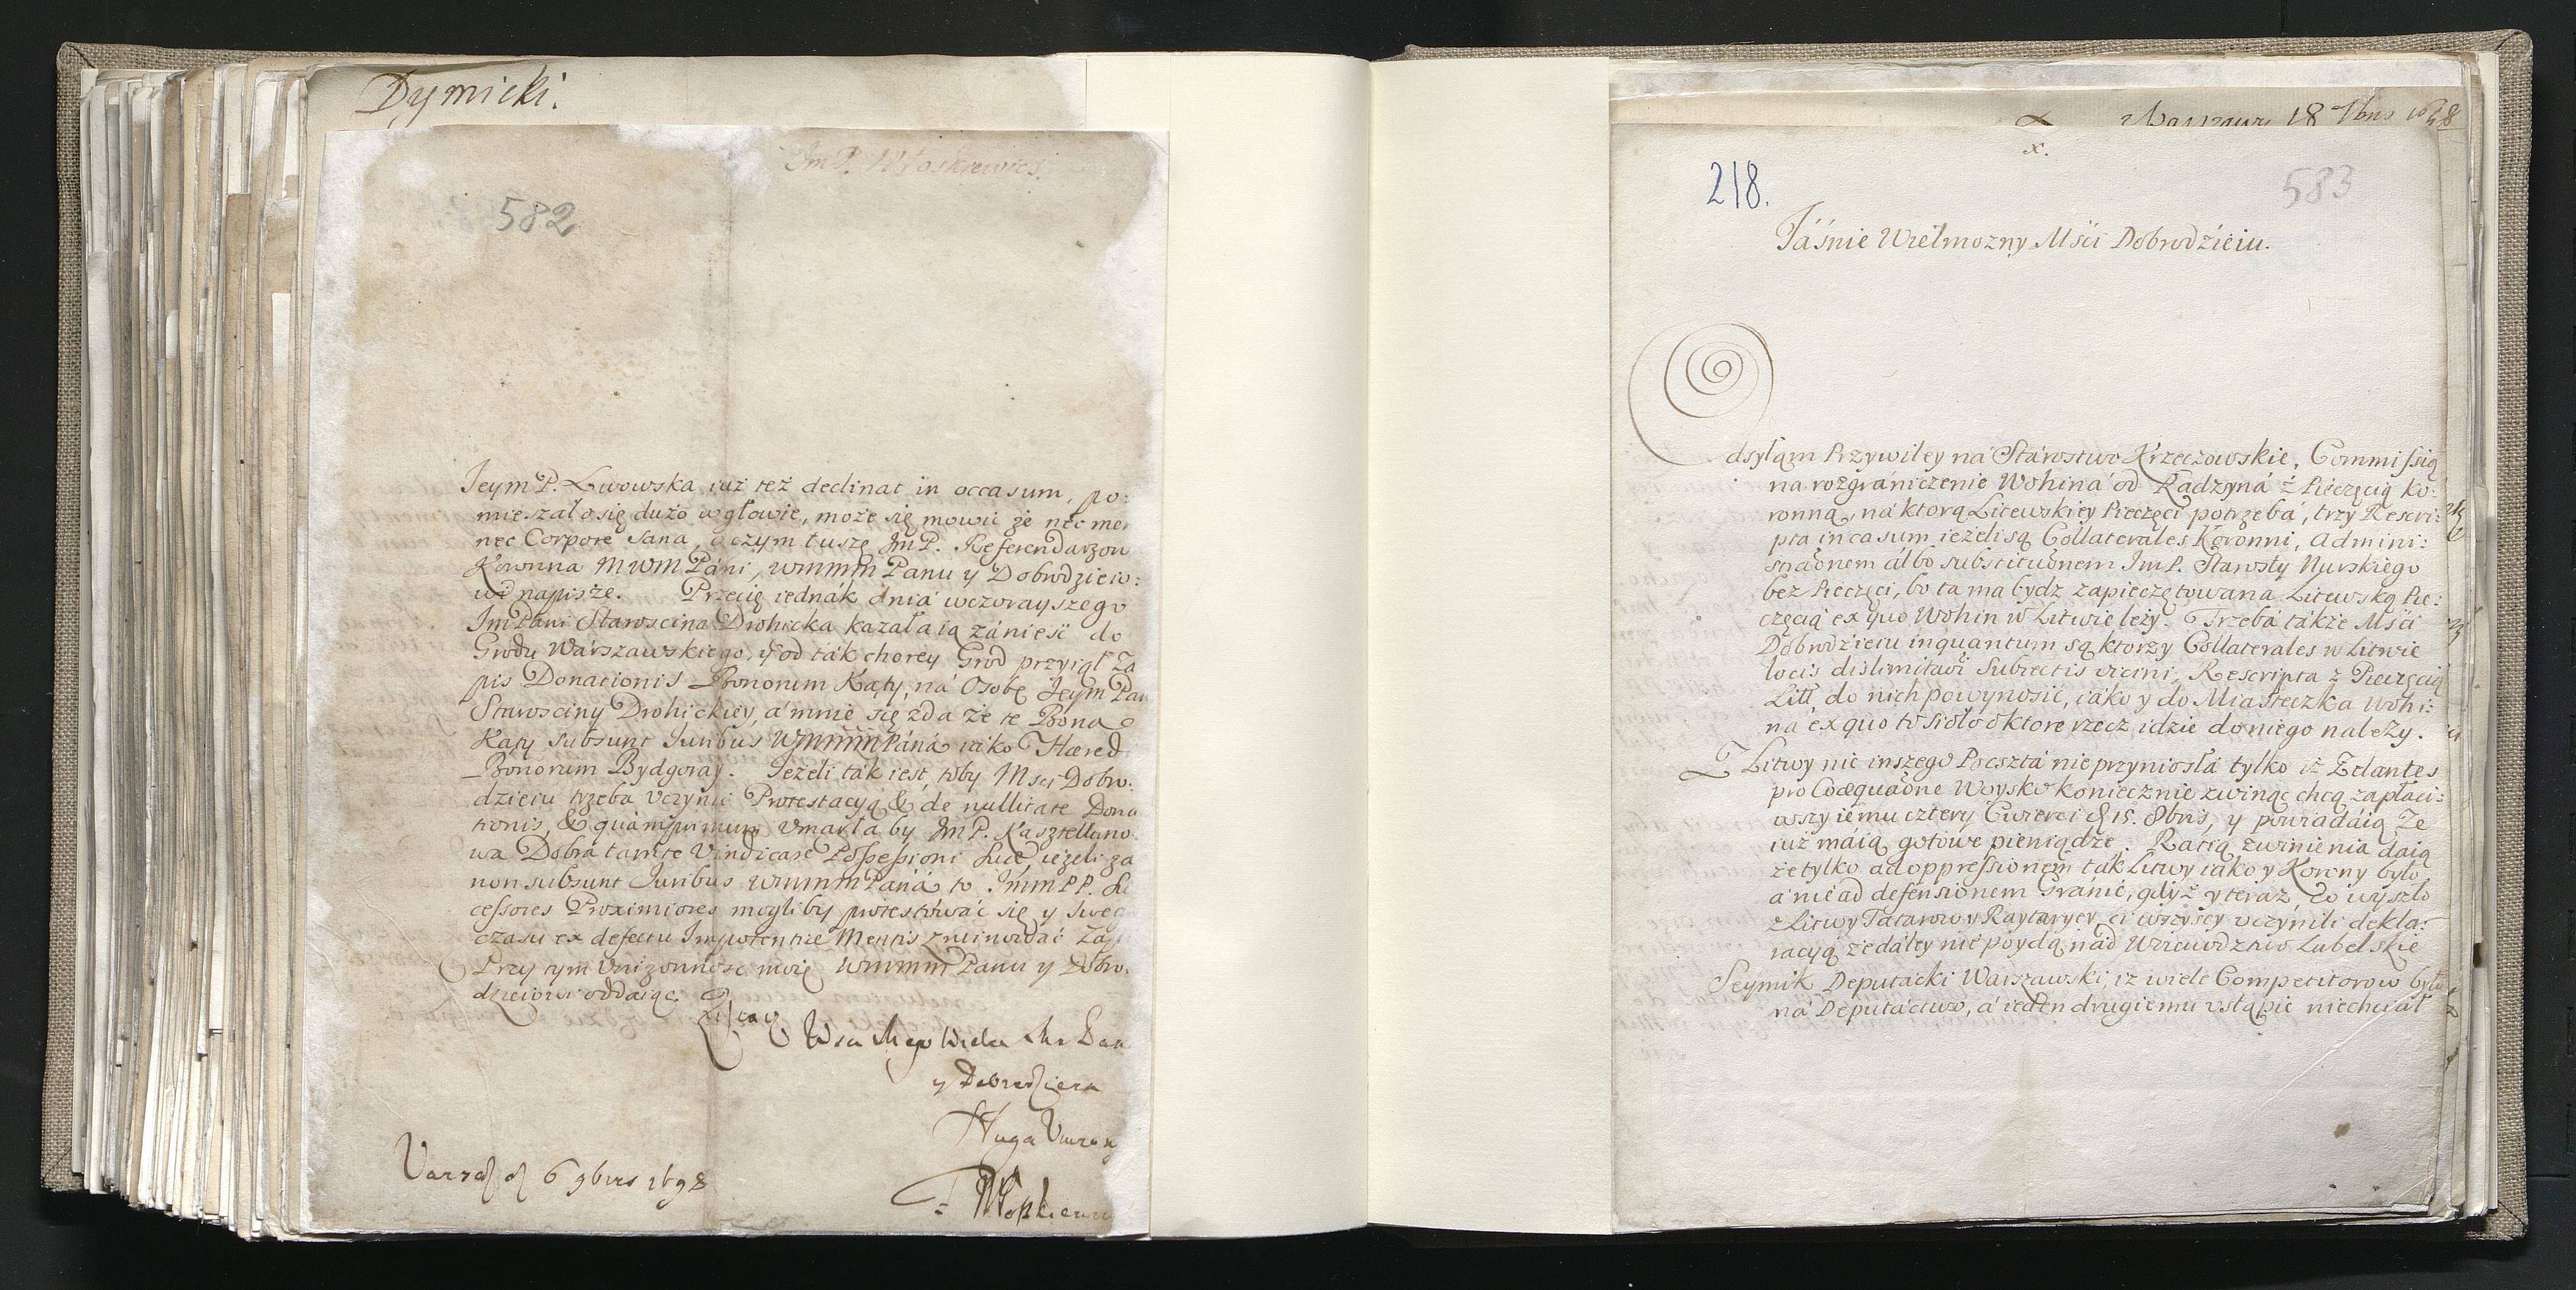 Dymicki.
Im P. Włoskiewicz.
582
Ieym P. Lwowska iuż też declinat in occasum, po:
mieszało się dużo w głowie, może się mowić że nec men
nec Corpore sana, o czym tuszę Jm P. Referendarzow
Koronna MWM Pani, WMMM Panu y Dobrodzieio:
wi napisze. Przecię iednák dniá wczorayszego
Jm Pani Starościna Drohicka kazała ią zánieść do
Grodu Wárszawskiego, y od ták chorey Grod przyiął Za
pis Donationis Bonorum Kąty, ná Osobę Jeym Pan
Starosciny Drohickiey, á mnie się zda że te Bona
Kąty subsunt Iuribus WMMM Páná iáko Hæred
Bonorum Bydgoray. Ieżeli ták iest, toby Msci Dobro:
dzieiu trzeba vczynić Protestacyą & de nullitate Dona
tionis, & quamprimum vmarła by Jm P. Kasztellano:
wa Dobrá tamte Vindicare Possessioni Suæ, ieżeli zá
non subsunt Iuribus WMMM Páná to Jmm PP. Su
cessores Proximiores mogliby protestowáć się y swego
czasu ex defectu Impotentiæ Mentis znuinowáć Zap
Przy tym vniżonność moię WMMM Panu y Dobro:
dzieiowi oddaiąc.
Wsu Mego Wielce Mo Pan
y Dobrodzieia
Sługa Vniżon
6 9bris 1698
218.
x.
Warszawy 18 7bris 1698
583
Iáśnie Wielmozny Mści Dobrodźieiu.
Odsyłąm Przywiley ná Stárostwo Krzeczowskie, Commissią
na rozgrániczenie Wohiná od Radzyná z Pieczęcią Ko:
ronną, ná ktorą Litewskiey Pieczęci potrzebá, trzy Rescri:
pta in casum ieżeli są Collaterales Koronni, Admini:
bez Pieczęci, bo ta ma bydz zapieczętowana Litewską Pie:
częcią ex quo Wohin w Litwie leży. Trzebá tákże Mści
Dobrodźieiu inquantum są ktorzy Collaterales w Litwie
Litt. do nich powynosić, iáko y do Miasteczka Wohi:
ná ex quo to sioło o ktore rzecz idzie do niego należy.
Z Litwy nic inszego Poczta nie przyniosłá tylko iż Zelantes
pro Coæquaone Woysko koniecznie zwinąc chcą zapłaci:
wszy iemu cztery Cwierci d. 15. 8bris, y powiadáią że
iuż máią gotowe pieniądze. Ratią zwinienia daią
że tylko ad oppressionem ták Litwy iáko y Korony było
á nie ad defensionem Gránic, gdyż y teraz, co wyszło
z Litwy Tatarow y Raytaryey, ci wszyscy vczynili dekla:
racyą że dáley nie poydą nád Woiewodztwo Lubelskie
Seymik Deputacki Warszawski, iż wiele Competitorow było
ná Deputáctwo, á ieden drugiemu vstąpić niechciał